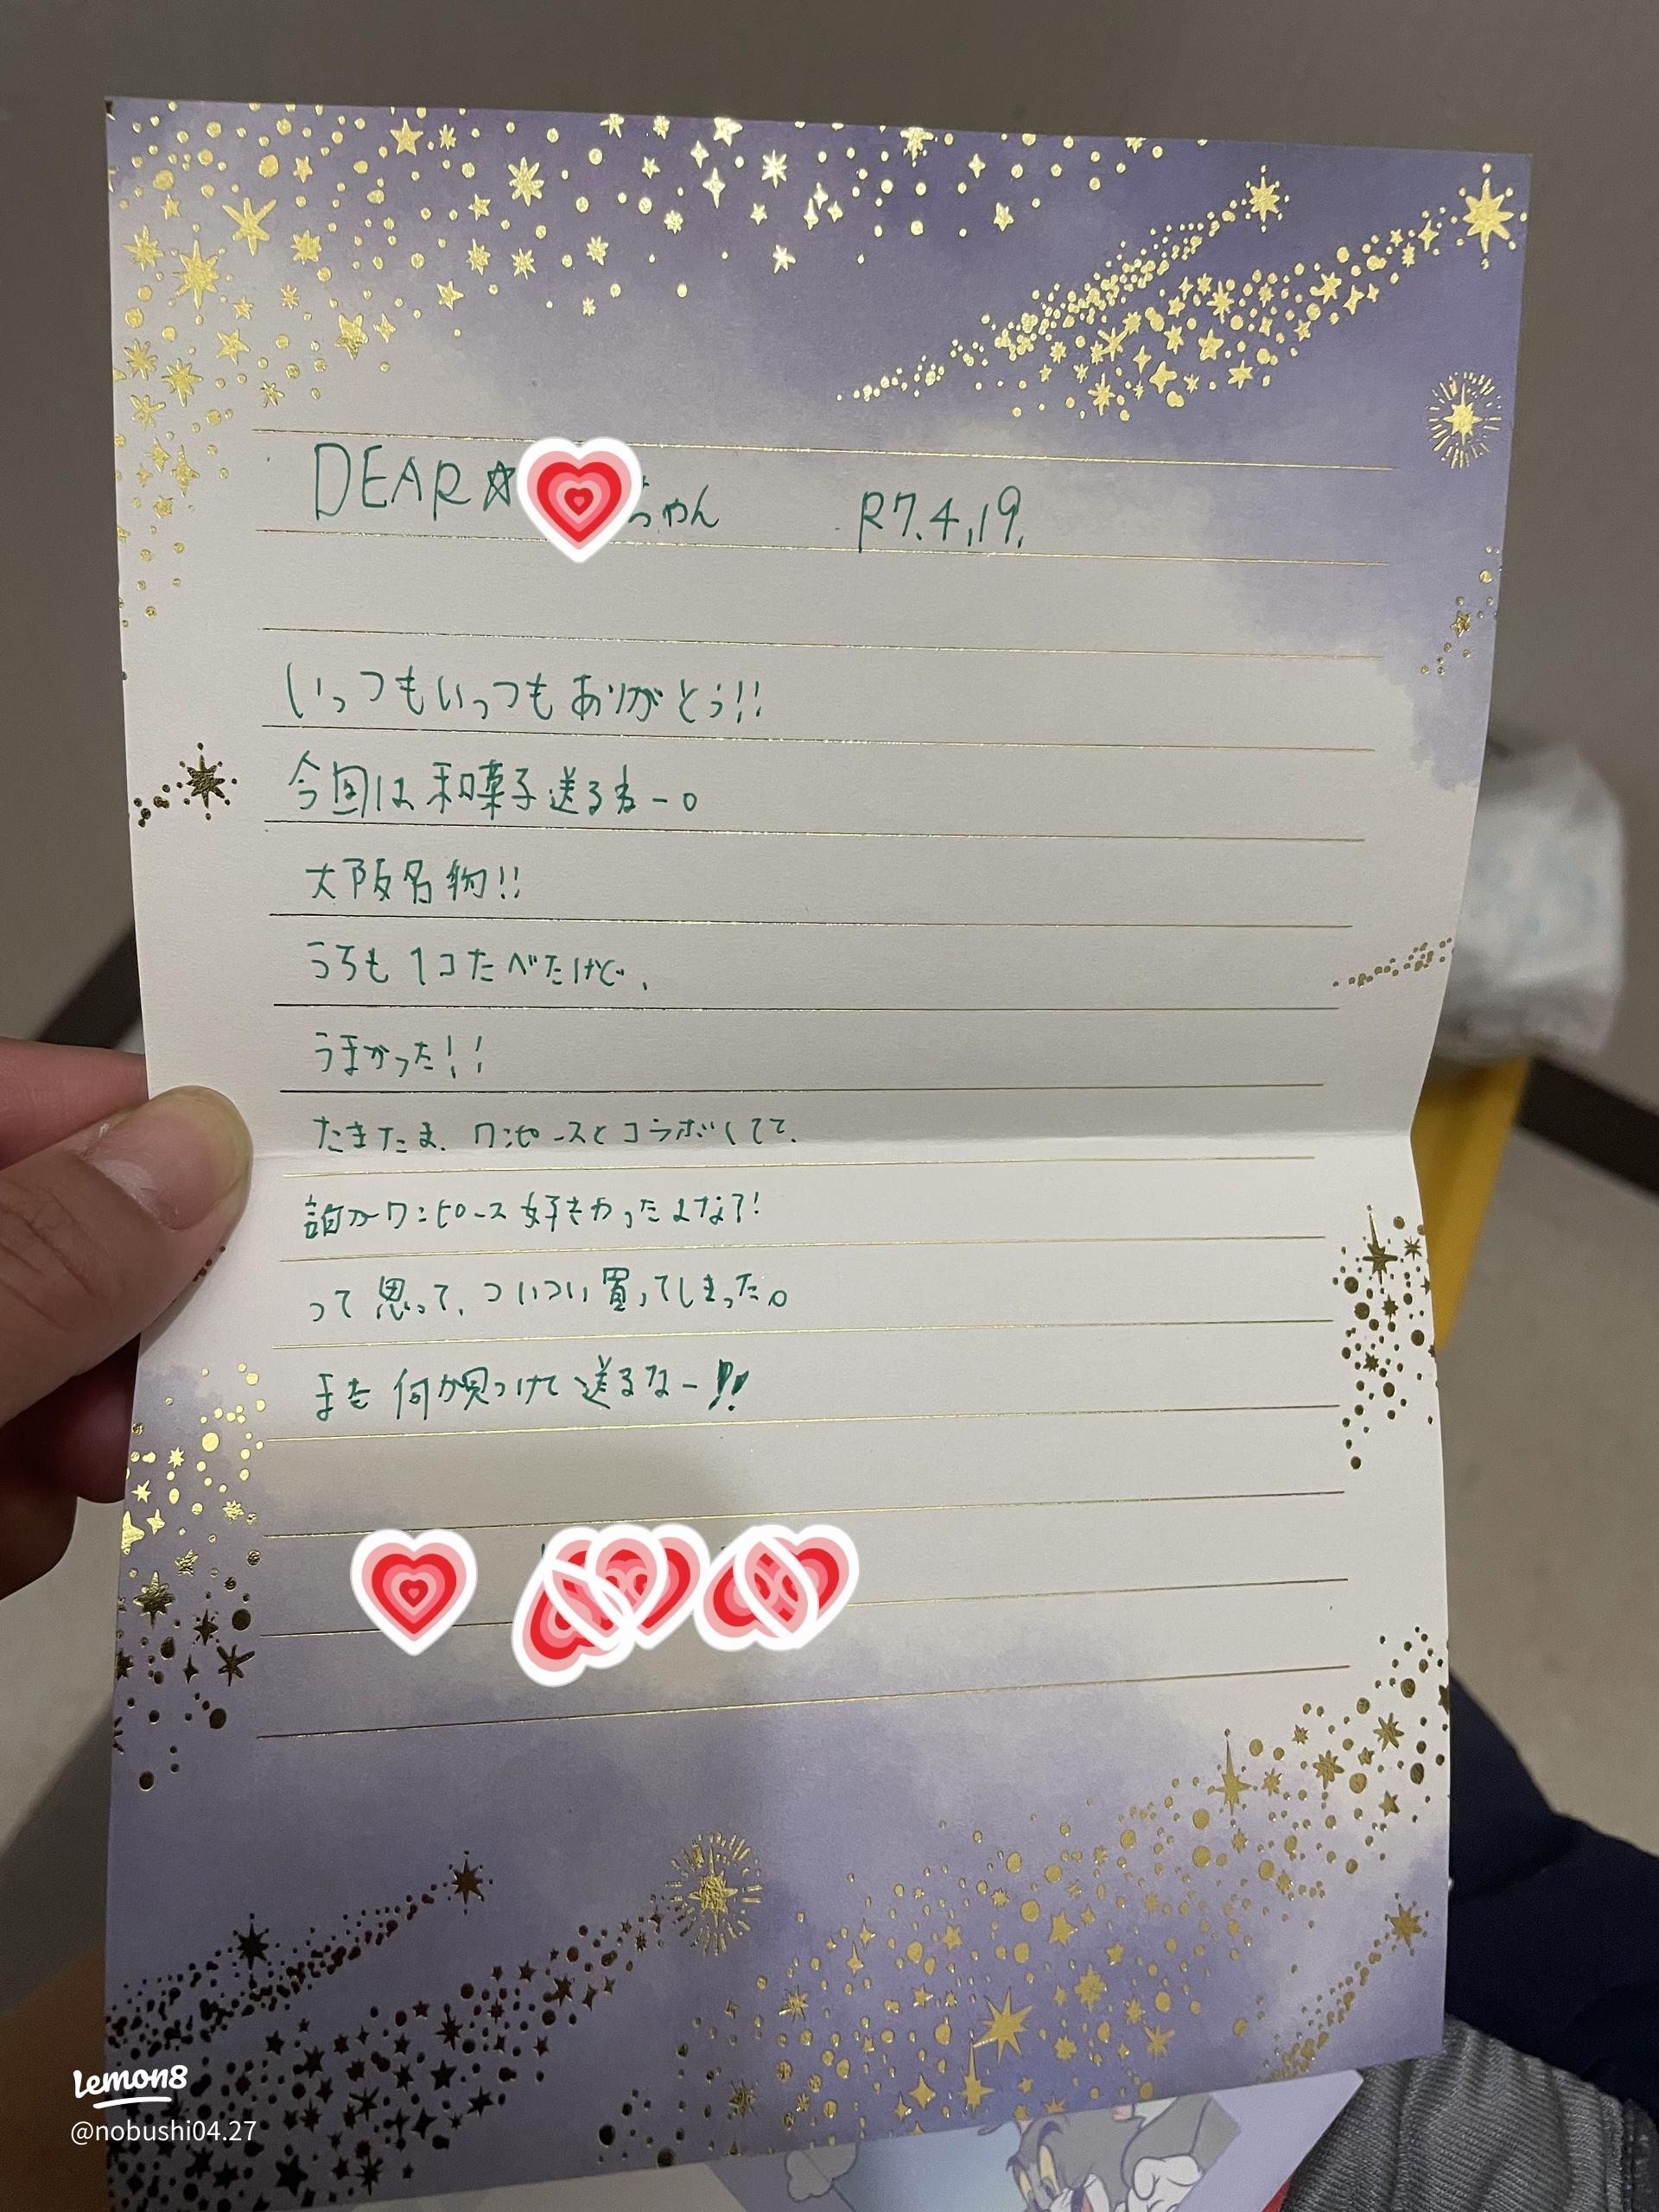 DEAR☆ ちゃん R7.4.19.
いっつもいっつもありがとう!!
今回は和菓子送るね-。
大阪名物!!
うちも1コたべたけど、
うまかった!!
たまたま、ワンピースとコラボしてて、
誰かワンピース好きやったよな?!
って思って、ついつい買ってしまった。
また何か見つけて送るなー!!
Lemon8
@nobushi04.27